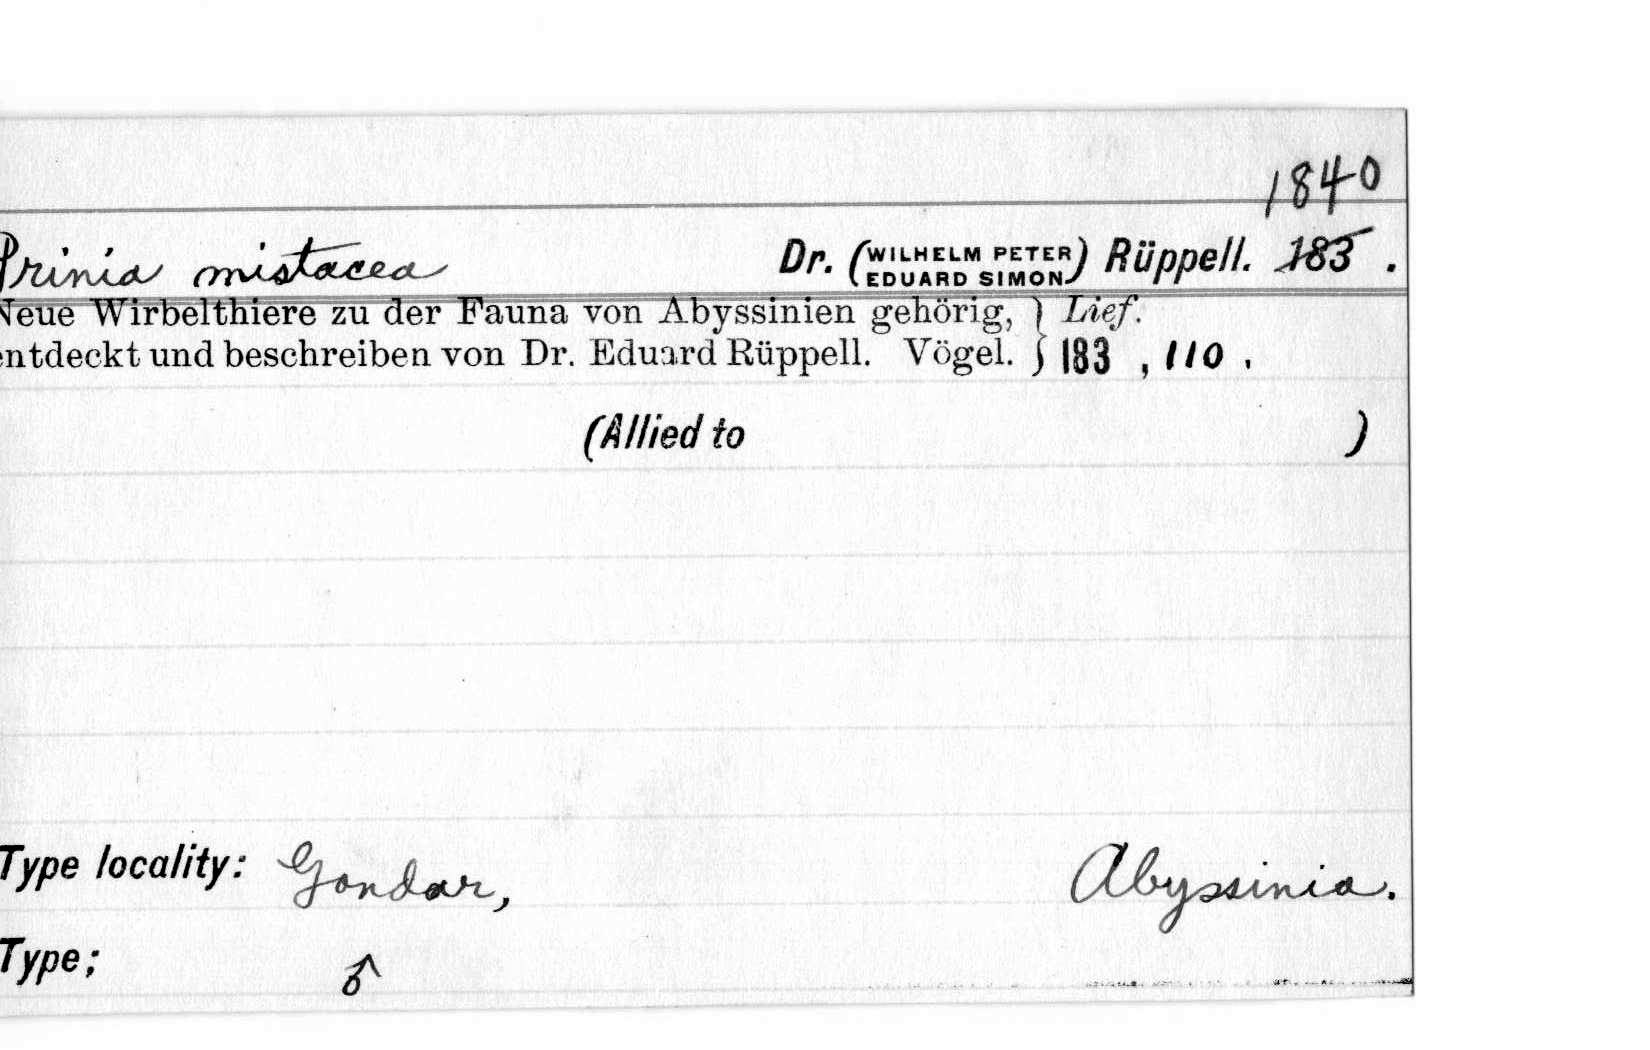 1840
Prinia mistacea Dr. (WILHELM PETER EDUARD SIMON) Rüppell. 183 .
Neue Wirbelthiere zu der Fauna von Abyssinien gehörig, } Lief.
entdeckt und beschreiben von Dr. Eduard Rüppell. Vögel. } 183 , 110 .
(Allied to )
Type locality: Gondar, Abyssinia.
Type; ♂